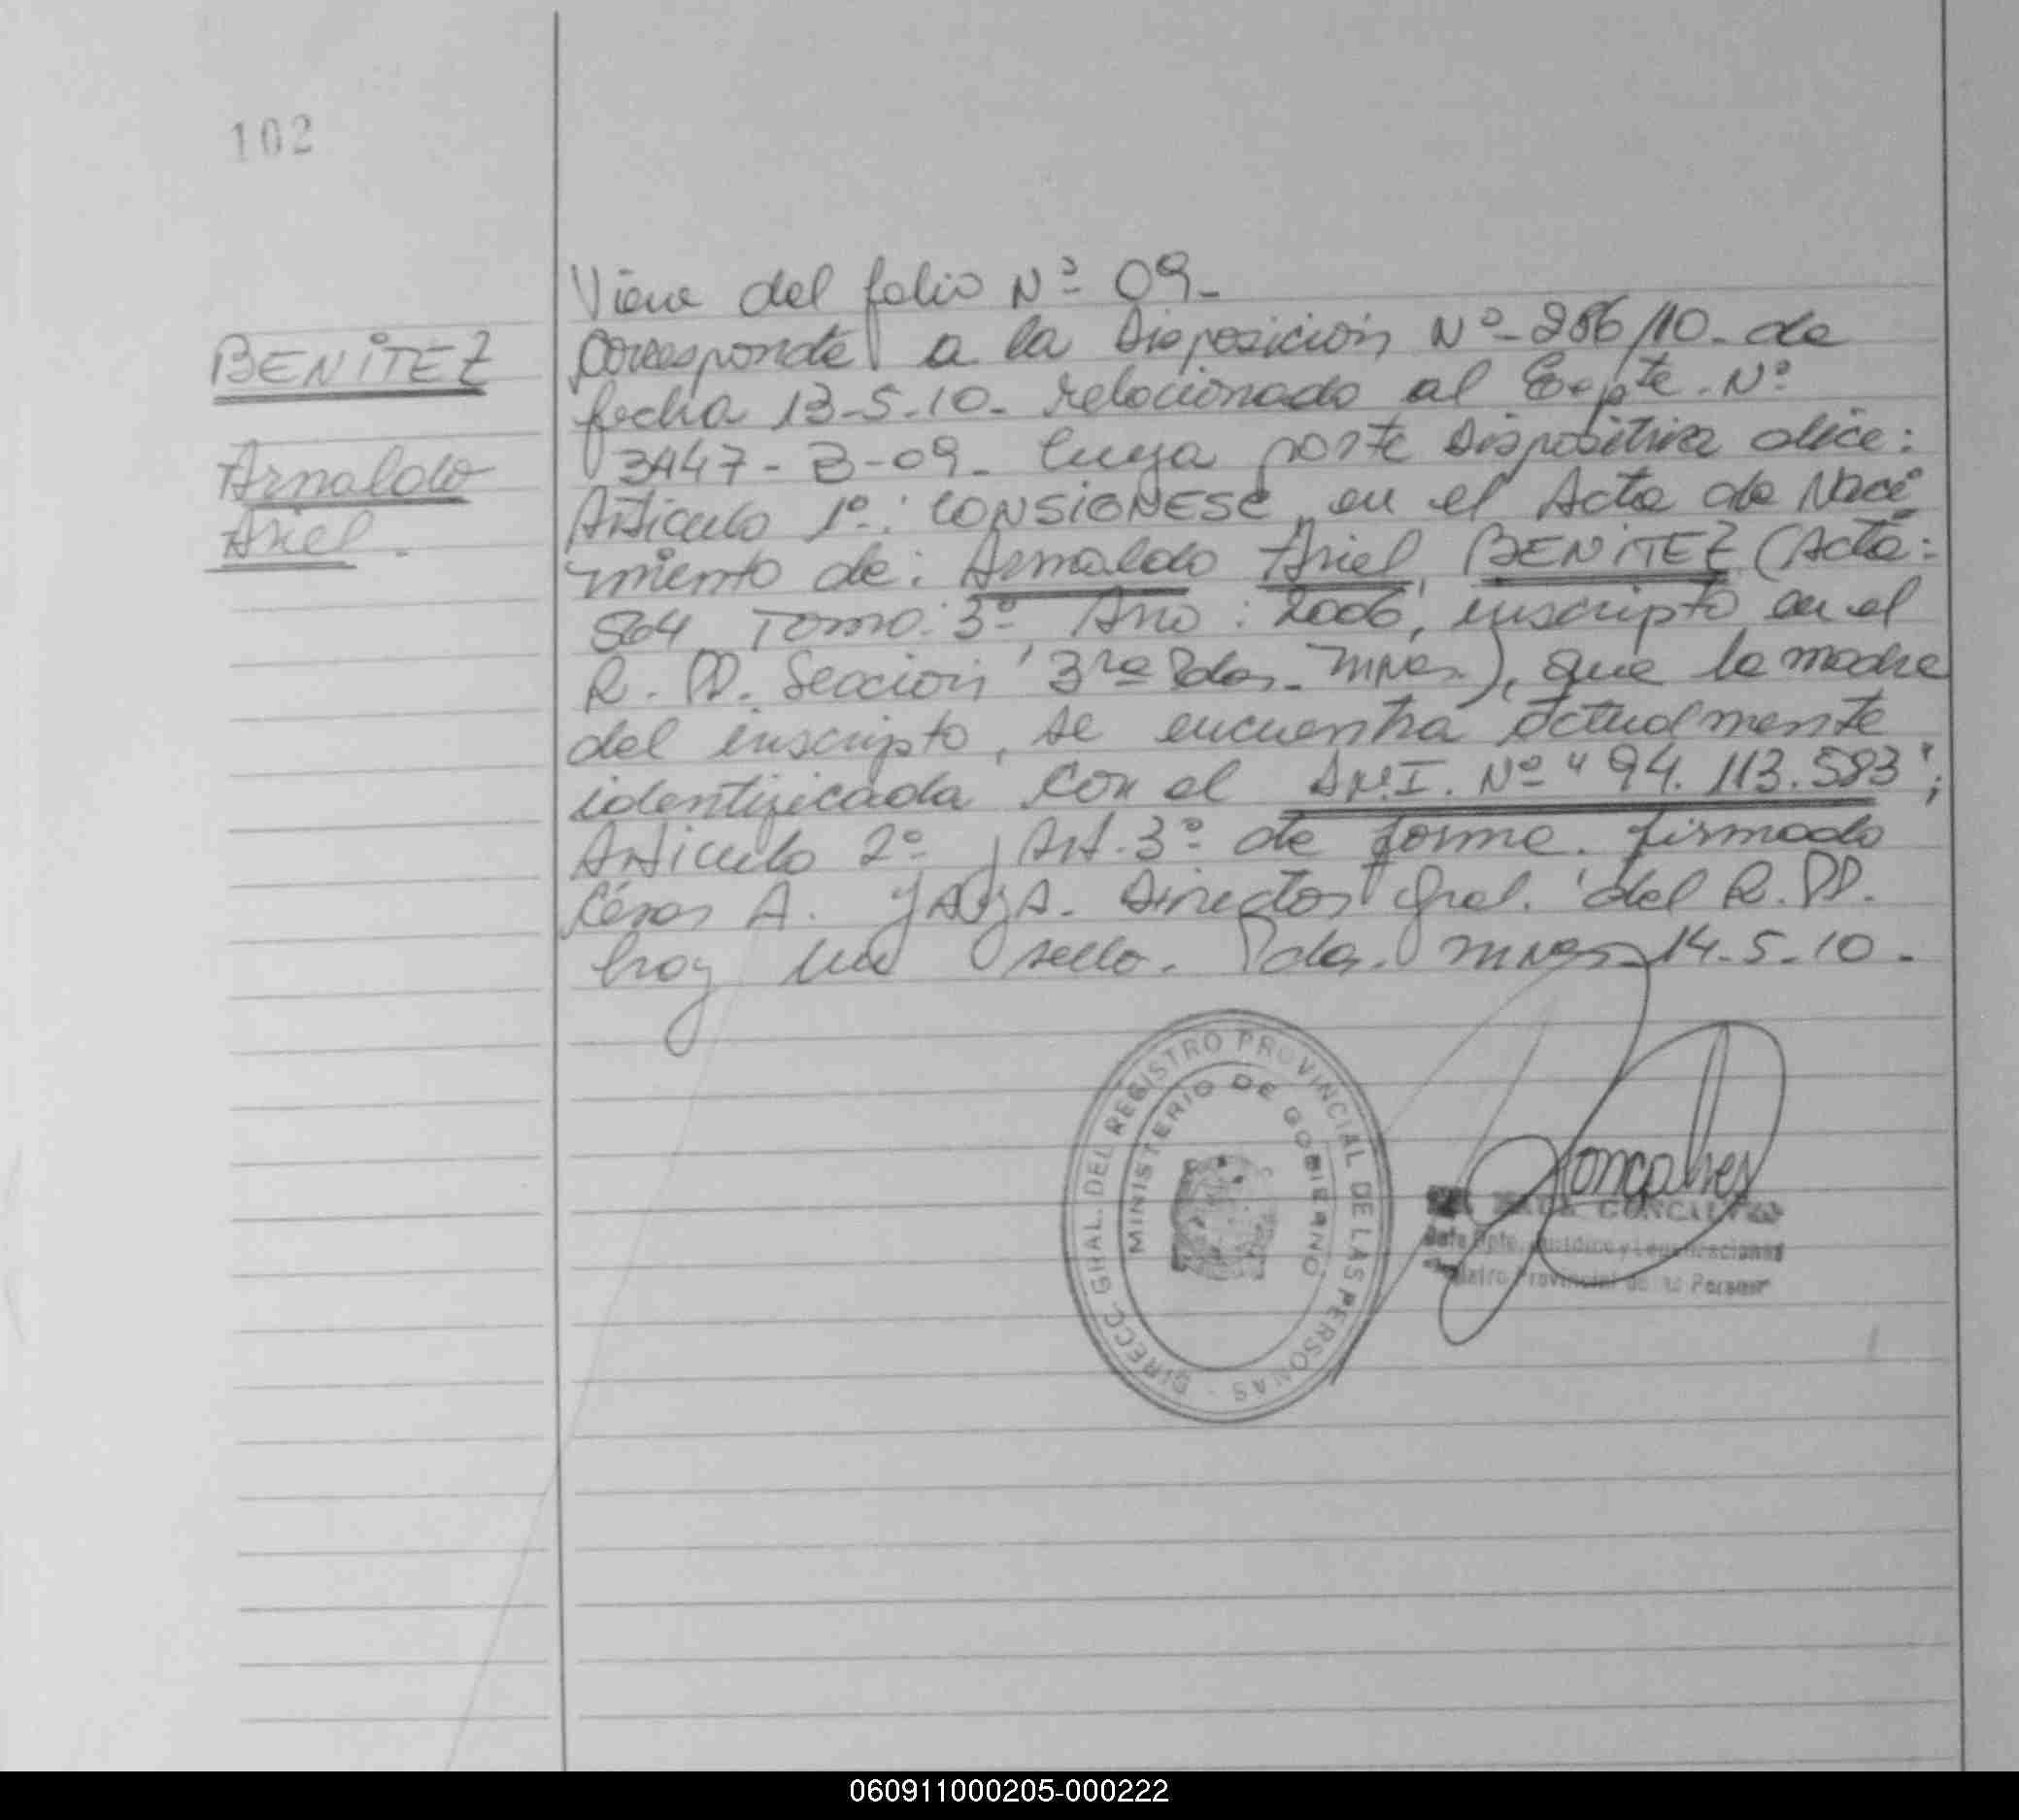 102
Viene del folio Nº 09-
BENITEZ
Corresponde a la Disposición Nº-286/10- de
fecha 13-5-10- relacionado al Expte. Nº
Arnaldo
3447-B-09- Cuya parte Dispositiva dice:
Ariel.
Articulo 1º: CONSIGNESE, en el Acta de Naci
miento de: Arnaldo Ariel BENITEZ (Acta:
564 Tomo: 3º Año: 2006, inscripto en el
R. PP. Sección 3ra Pdas- Mnes), que la madre
del inscripto, se encuentra actualmente
identificada con el D.N.I. Nº "94.113.583";
Articulo 2º y Art. 3º de forma. firmado
César A. YAYA. Director Gral. del R. PP.
hay un sello. Pdas. Mnes 14-5-10-
DIRECC. GRAL. DEL REGISTRO PROVINCIAL DE LAS PERSONAS
MINISTERIO DE GOBIERNO
Goncalves
GONCALVES
Dpto. Jurídico y Legalizaciones
Provincial de las Personas
060911000205-000222